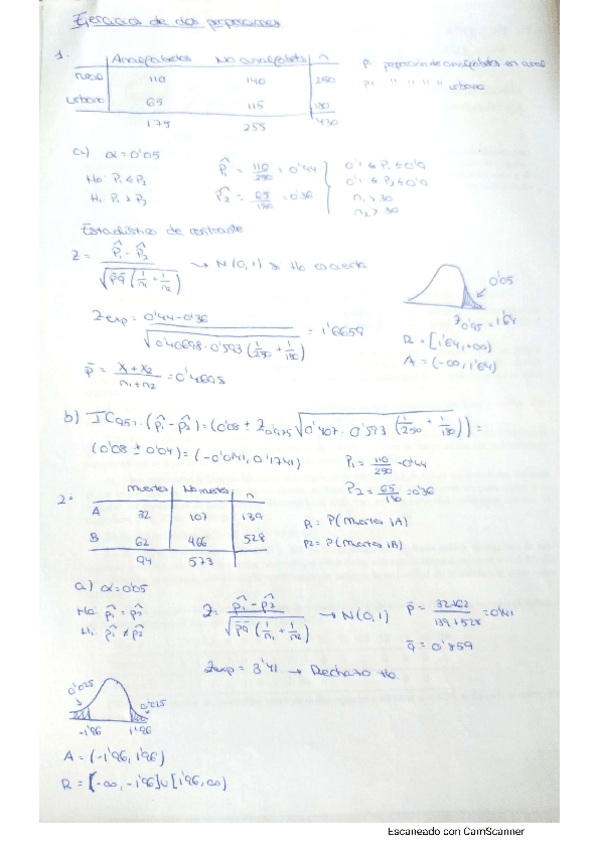 Ejercicios de dos proporciones
1.
Analfabetos No analfabetos n
rural 110 140 250
urbano 65 115 180
175 255 430
P1: proporción de analfabetos en rural
P2: " " " " urbano
a) α = 0'05
H0: P1 ≤ P2
H1: P1 > P2
p̂1 = 110/250 = 0'44
p̂2 = 65/180 = 0'36
0'1 ≤ P1 ≤ 0'9
0'1 ≤ P2 ≤ 0'9
n1 > 30
n2 > 30
Estadístico de contraste
Z = (p̂1 - p̂2) / √(p̄q̄ (1/n1 + 1/n2)) → N(0,1) si H0 es cierta
0'05
Z0'95 = 1'64
R = [1'64, +∞)
A = (-∞, 1'64)
Zexp = (0'44 - 0'36) / √(0'40698 · 0'593 (1/250 + 1/180)) = 1'6659
p̄ = (X1 + X2) / (n1 + n2) = 0'4698
b) IC95%. (p̂1 - p̂2) = (0'08 ± Z0'975 √(0'407 · 0'593 (1/250 + 1/180))) =
(0'08 ± 0'04) = (-0'0141, 0'1741)
P1 = 110/250 = 0'44
P2 = 65/180 = 0'36
2.
Muertes No muertes n
A 32 107 139
B 62 466 528
94 573
P1 = P(muertes | A)
P2 = P(muertes | B)
a) α = 0'05
H0: p̂1 = p̂2
H1: p̂1 ≠ p̂2
Z = (p̂1 - p̂2) / √(p̄q̄ (1/n1 + 1/n2)) → N(0,1)
p̄ = (32+62) / (139+528) = 0'141
q̄ = 0'859
Zexp = 3'41 → Rechazo H0.
0'025 0'025
-1'96 1'96
A = (-1'96, 1'96)
R = [-∞, -1'96] ∪ [1'96, ∞)
Escaneado con CamScanner